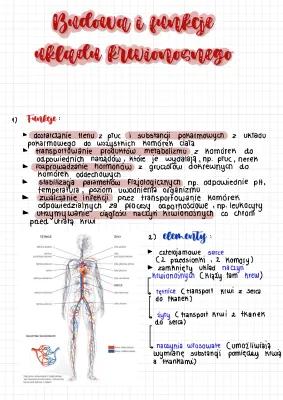 Budowa i funkcje
układu krwionośnego
1) Funkcje:
► dostarczanie tlenu z płuc i substancji pokarmowych z układu
pokarmowego do wszystkich komórek ciała
► transportowanie produktów metabolizmu z komórek do
odpowiednich narządów, które je wydalają, np. płuc, nerek
► rozprowadzanie hormonów z gruczołów dokrewnych do
komórek
► stabilizacja parametrów fizjologicznych np. odpowiednie pH,
temperatura, poziom uwodnienia organizmu
► zwalczanie infekcji przez transportowanie komórek
odpowiedzialnych za procesy odpornościowe np. leukocyty
► utrzymywanie ciągłości naczyń krwionośnych co chroni
przed utratą krwi
2) elementy:
► czterojamowe serce
(2 przedsionki, 2 komory)
► zamknięty układ naczyń
krwionośnych (krąży tam krew)
tętnice (transport krwi z serca
do tkanek)
żyły (transport krwi z tkanek
do serca)
naczynia włosowate (umożliwiają
wymianę substancji pomiędzy krwią
a tkankami)